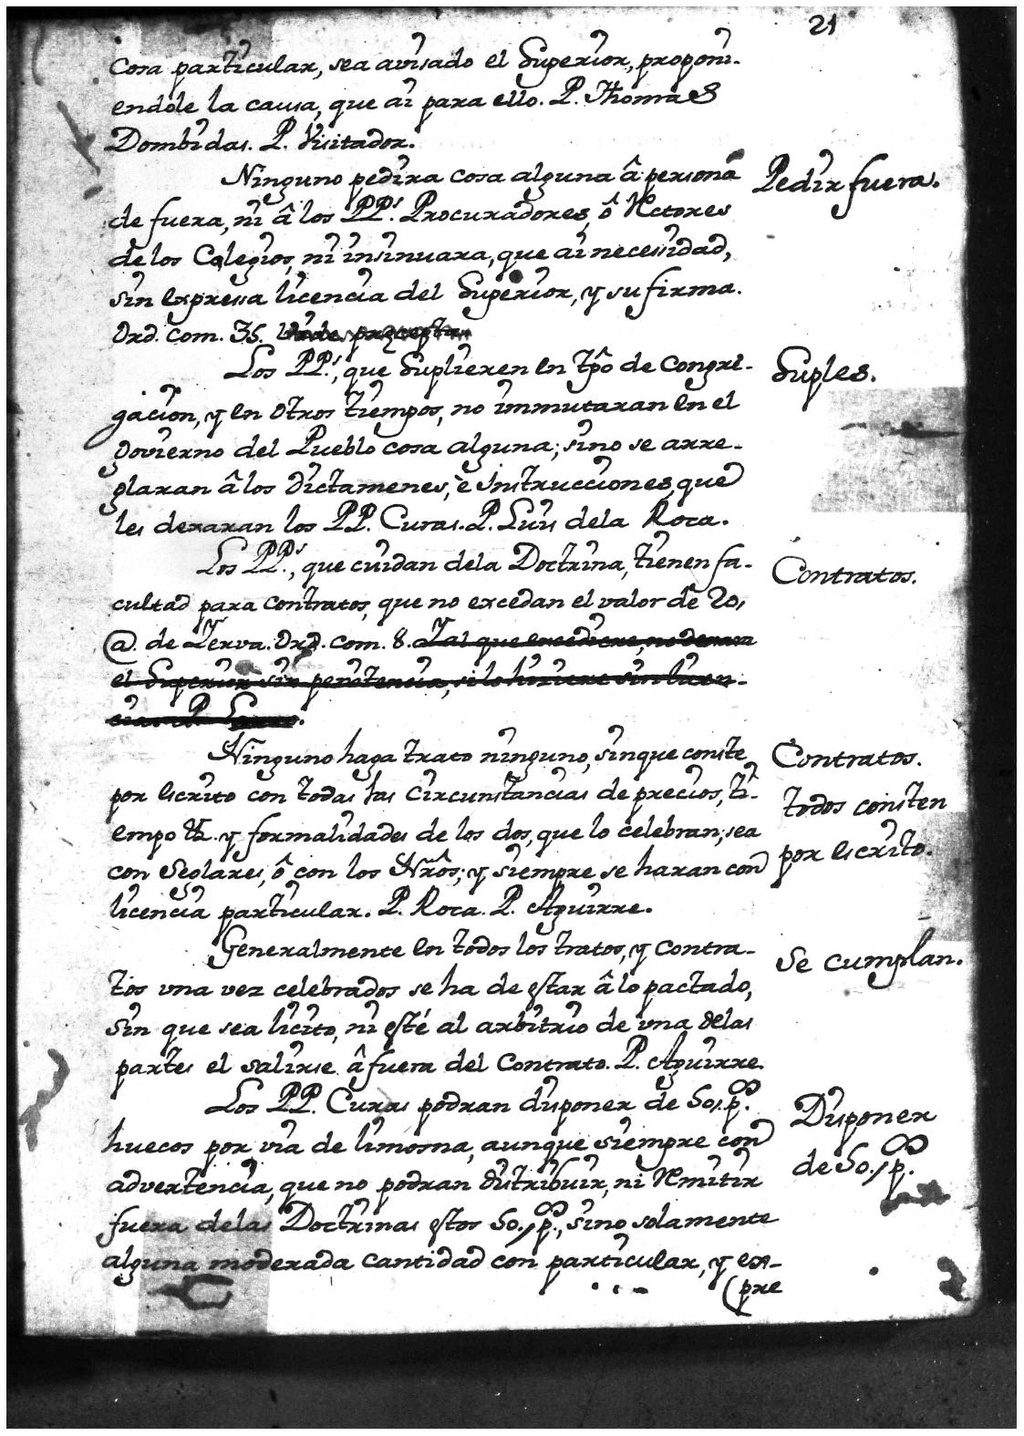 21
cosa particular, sea avisado el Superior, proponi-
endole la causa, que ai para ello. P. Thomas
Dombidas. P. Visitador.
Ninguno pedira cosa alguna â persona
Pedir fuera.
de fuera, ni â los PP.s Procuradores, ô Retores
de los Colegios, ni insinuara, que ai necessidad,
sin expressa licencia del Superior, y su firma.
Ord. com. 35.
Los PP.s, que suplieren en tpô de Congre-
Suples.
gacion, y en otros tiempos, no immutaran en el
Govierno del Pueblo cosa alguna; sino se arre-
glaran â los dictamenes, è Instrucciones, que
les dexaran los PP. Curas. P. Luis dela Roca.
Los PP.s, que cuidan dela Doctrina, tienen fa-
Contratos.
cultad para contratos, que no excedan el valor de 20,
@. de Yerva. Ord. com. 8. Y al que excediere, no dexara
el Superior sin penitencia, si lo hiziere sin licen-
cia. P.
Ninguno haga trato ninguno, sin que conste
Contratos.
por escrito con todas las circunstancias de precios, ti-
todos consten
empo &. y formalidades de los dos, que lo celebran; sea
por escrito.
con Seglares, ô con los Nrôs; y siempre se haran con
licencia particular. P. Roca. P. Aguirre.
Generalmente en todos los tratos, y contra-
Se cumplan.
tos una vez celebrados se ha de estar â lo pactado,
sin que sea licito, ni esté al arbitrio de una delas
partes el salirse â fuera del contrato. P. Aguirre.
Los PP. Curas podran disponer de 50, p.s
Disponer
huecos por via de limosna, aunque siempre con
de 50, p.s
advertencia, que no podran distribuir, ni remitir
fuera delas Doctrinas estos 50, p.s, sino solamente
alguna moderada cantidad con particular, y ex-
(pre